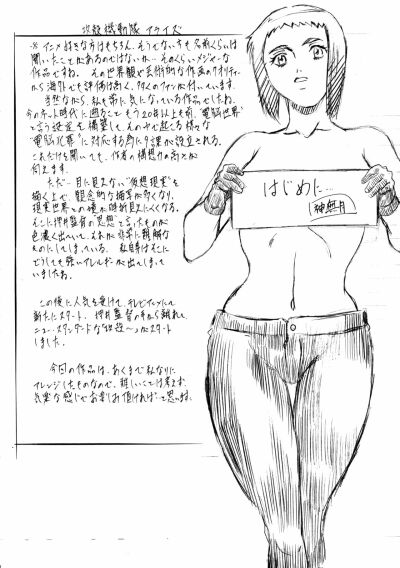 攻殻機動隊 アライズ
※ アニメ好きな方はもちろん、そうでない方も名前くらいは
聞いたことがあるのではないか…そのくらいメジャーな
作品ですね。 その世界観や芸術的な作画のクオリティー
から海外でも評価は高く、多くのファンが付いています。
当然ながら、私も前に気になっている作品でしたね。
今のネット時代に遡ること もう20年以上も前、"電脳世界"
と言う設定を構築して、その中で起こる様々な
"電脳犯罪"に対応する為に9課が設立される。
これだけを聞いても、作者の構想力の高さが
伺えます。
ただ… 目に見えない"仮想現実"を
描く上で、観念的な描写が多くなり、
現実世界との境が時折見えにくくなる。
そこに押井監督の"思想"と言ったものが
色濃く出ていて、それが非常に難解な
ものにしてしまっている。 私自身はそこに
どうしても強いアレルギーが出てしまって
いましたね。
この後に人気を受けて、テレビアニメにて
新たにスタート。 押井監督の手から離れて、
ニュー・スタンダードな"攻殻〜"がスタート
しました。
今回の作品は、あくまで私なりに
アレンジしたものなので、難しいことは考えず、
気楽な感じでお楽しみ頂ければと思います。
はじめに…
神無月